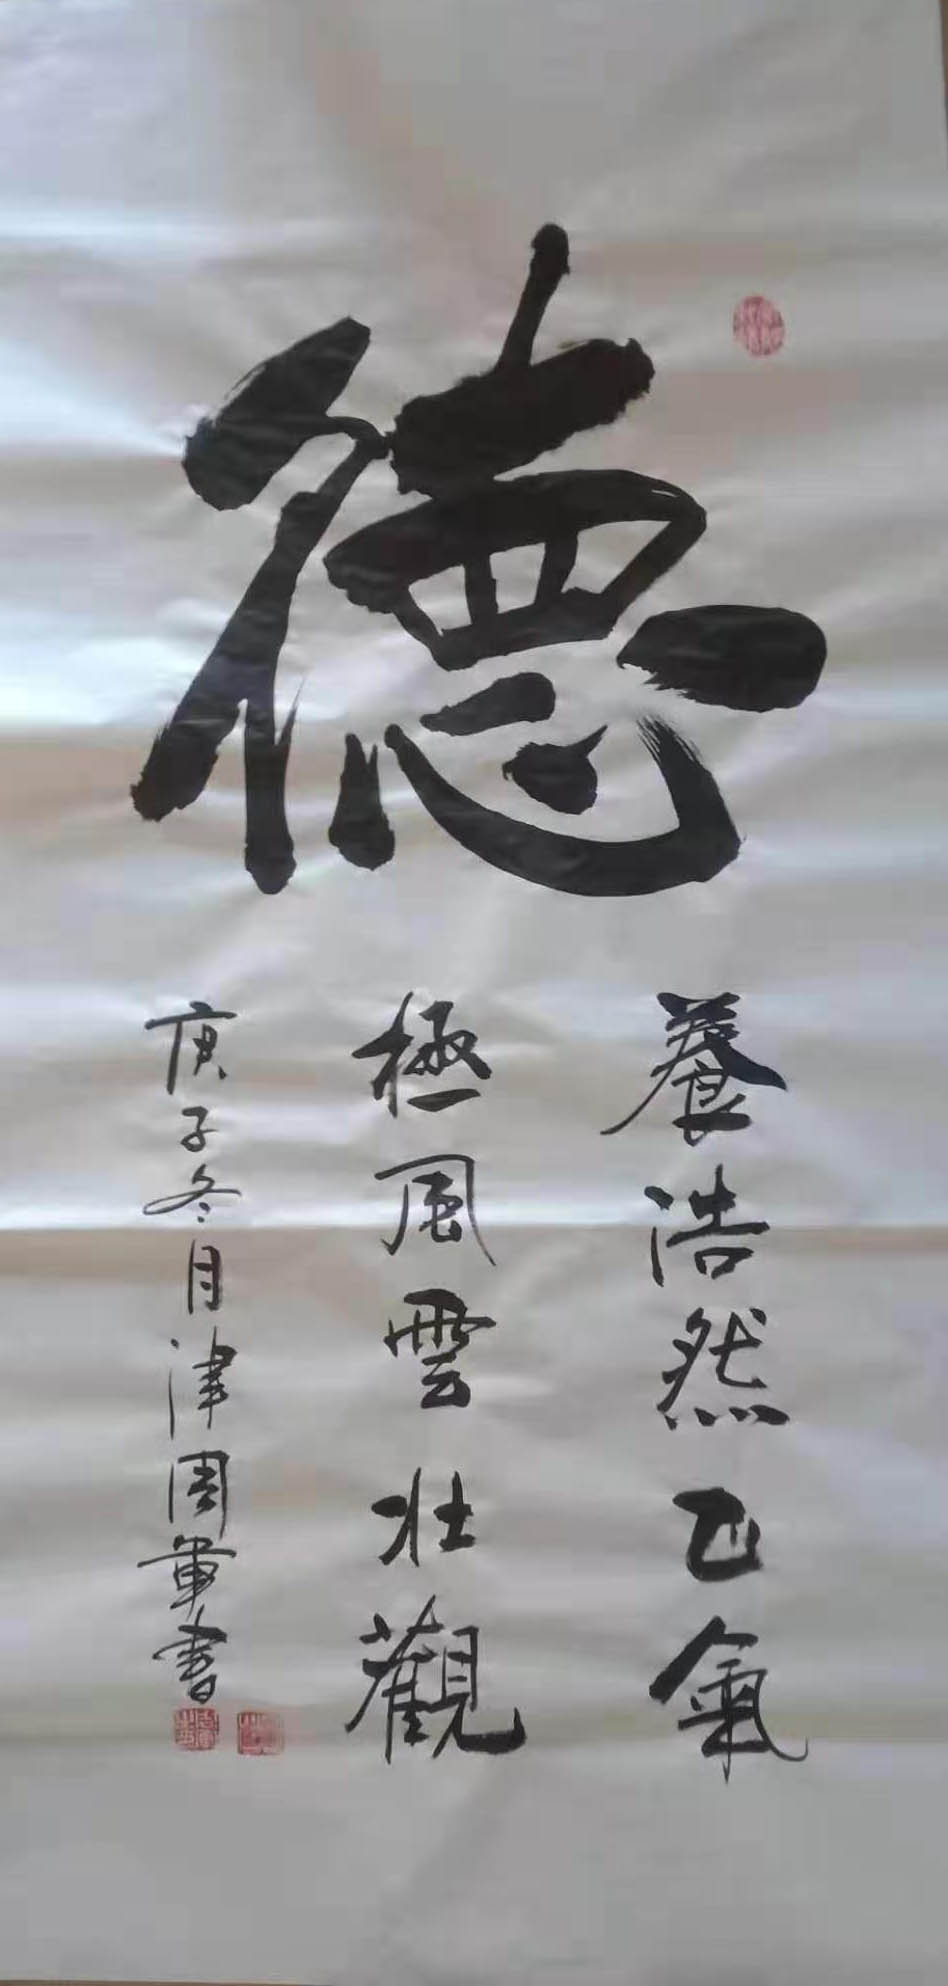 德
養浩然正氣
極風雲壯觀
庚子冬月津周軍書